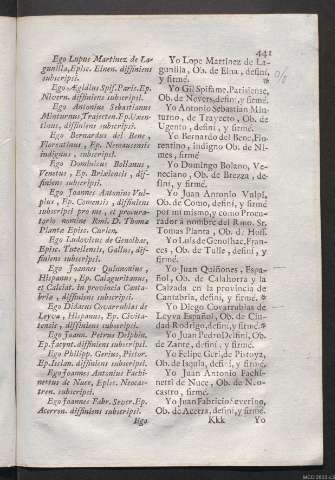 441
Ego Lupus Martinez de La-
gunilla, Episc. Elnen. diffiniens
subscripsi.
Ego Ægidius Spif. Paris. Ep.
Nivern. diffiniens subscripsi.
Ego Antonius Sebastianus
Minturnus, Trajecten. Ep. Uxen-
tinus, diffiniens subscripsi.
Ego Bernardus del Bene,
Florentinus, Ep. Nemausensis
indignus, subscripsi.
Ego Dominicus Bollanus,
Venetus, Ep. Brixiensis, dif-
finiens subscripsi.
Ego Joannes Antonius Vul-
pius, Ep. Comensis, diffiniens
subscripsi pro me, et procura-
torio nomine Rmi. D. Thomæ
Plantæ Episc. Curien.
Ego Ludovicus de Genolhac,
Episc. Tutellensis, Gallus, dif-
finiens subscripsi.
Ego Joannes Quinonius,
Hispanus, Ep. Calaguritanus,
et Calciat. in provincia Canta-
bria, diffiniens subscripsi.
Ego Didacus Covarrubias de
Leyva, Hispanus, Ep. Civita-
tensis, diffiniens subscripsi.
Ego Joann. Petrus Delphin.
Ep. Jacynt. diffiniens subscripsi.
Ego Philipp. Gerius, Pistor.
Ep. Isclan. diffiniens subscripsi.
Ego Joannes Antonius Fachi-
nettus de Nuce, Episc. Neocas-
tren. subscripsi.
Ego Joannes Fabr. Sever. Ep.
Acerron. diffiniens subscripsi.
Ego
Yo Lope Martinez de La-
gunilla, Ob. de Elna, definí,
y firmé.
Yo Gil Spifame, Parisiense,
Ob. de Nevers, definí, y firmé.
Yo Antonio Sebastian Min-
turno, de Trayecto, Ob. de
Ugento, definí, y firmé.
Yo Bernardo del Bene, Flo-
rentino, indigno Ob. de Ni-
mes, firmé
Yo Domingo Bolano, Ve-
neciano, Ob. de Brezza, de-
finí, y firmé.
Yo Juan Antonio Vulpi,
Ob. de Como, definí, y firmé
por mí mismo, y como Procu-
rador a nombre del Rmo. Sr.
Tomas Planta, Ob. d. Hoff.
Yo Luis de Genolhac, Fran-
ces, Ob. de Tulle, definí, y
firmé.
Yo Juan Quiñones, Espa-
ñol, Ob. de Calahorra y la
Calzada en la provincia de
Cantabria, definí, y firmé. *
Yo Diego Covarrubias de
Leyva Español, Ob. de Ciu-
dad Rodrigo, definí, y firmé. *
Yo Juan Pedro Delfini, Ob.
de Zante, definí, y firmé.
Yo Felipe Geri, de Pistoya,
Ob. de Isquia, definí, y firmé.
Yo Juan Antonio Fachi-
netti de Nuce, Ob. de Neo-
castro, firmé.
Yo Juan Fabricio Severino,
Ob. de Acerra, definí, y firmé.
Kkk Yo